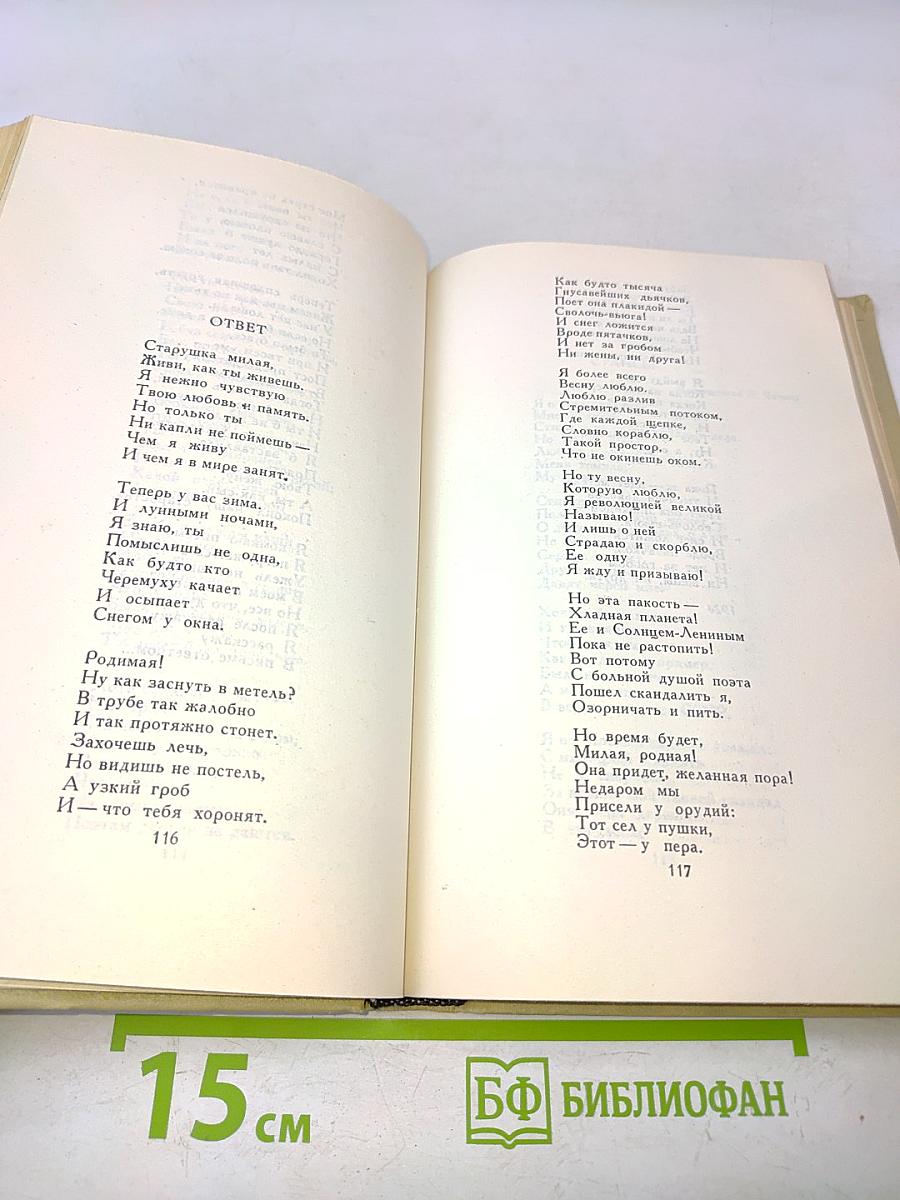 ОТВЕТ
Старушка милая,
Живи, как ты живешь.
Я нежно чувствую
Твою любовь и память.
Но только ты
Ни капли не поймешь —
Чем я живу
И чем я в мире занят.
Теперь у вас зима.
И лунными ночами,
Я знаю, ты
Помыслишь не одна,
Как будто кто
Черемуху качает
И осыпает
Снегом у окна.
Родимая!
Ну как заснуть в метель?
В трубе так жалобно
И так протяжно стонет.
Захочешь лечь,
Но видишь не постель,
А узкий гроб
И — что тебя хоронят.
116
Как будто тысяча
Гнусавейших дьячков,
Поет она плакидой —
Сволочь-вьюга!
И снег ложится
Вроде пятачков,
И нет за гробом
Ни жены, ни друга!
Я более всего
Весну люблю.
Люблю разлив
Стремительным потоком,
Где каждой щепке,
Словно кораблю,
Такой простор,
Что не окинешь оком.
Но ту весну,
Которую люблю,
Я революцией великой
Называю!
И лишь о ней
Страдаю и скорблю,
Ее одну
Я жду и призываю!
Но эта пакость —
Хладная планета!
Ее и Солнцем-Лениным
Пока не растопить!
Вот потому
С больной душой поэта
Пошел скандалить я,
Озорничать и пить.
Но время будет,
Милая, родная!
Она придет, желанная пора!
Недаром мы
Присели у орудий:
Тот сел у пушки,
Этот — у пера.
117
15 см
БФ БИБЛИОФАН